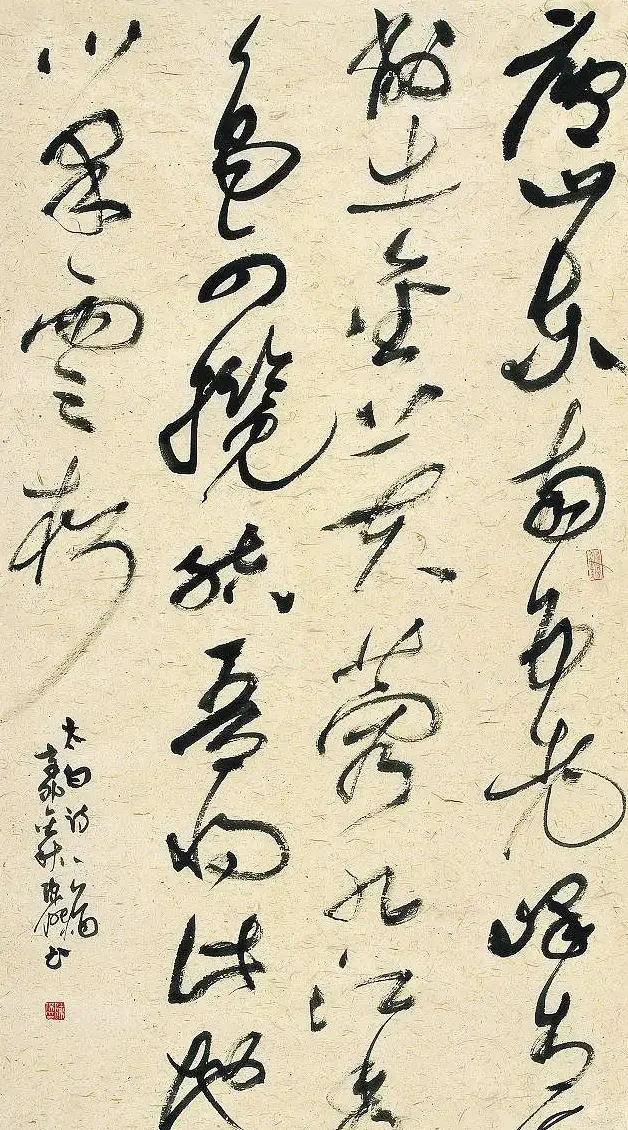 廬山東南五老峰青
削出金芙蓉九江秀
色可攬結吾將此地
巢雲松
太白诗一篇
书